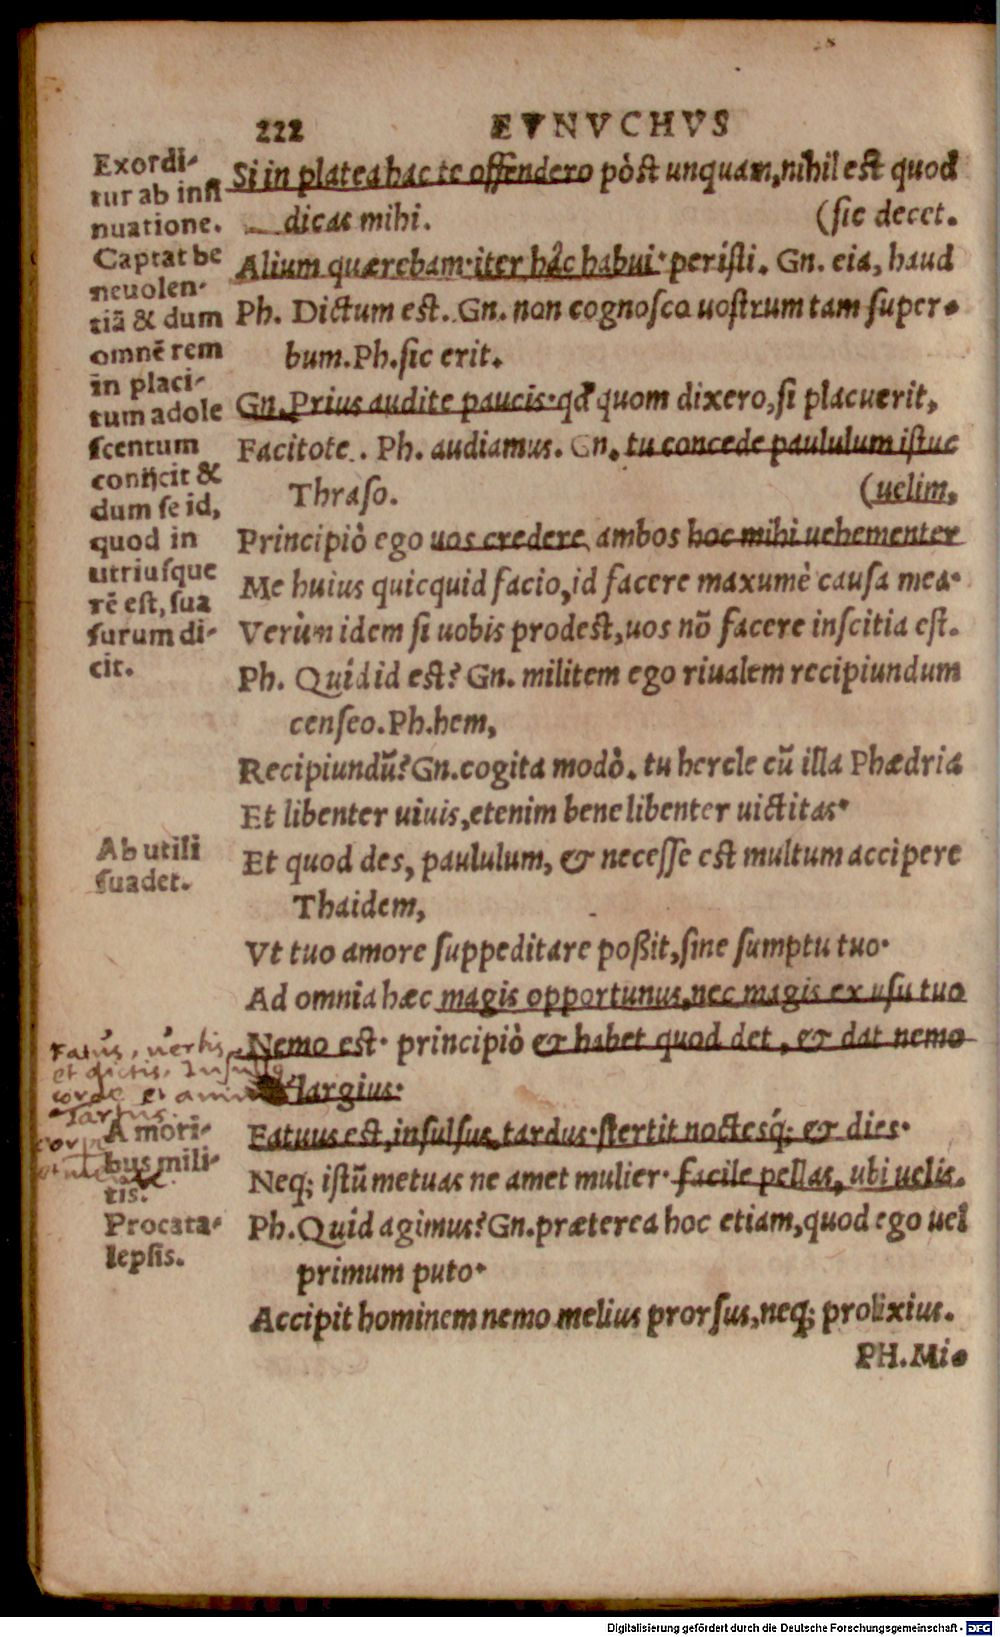 222 EVNVCHVS
Exordi-
tur ab insi
nuatione.
Captat be
neuolen-
tiā & dum
omnē rem
in placi-
tum adole
scentum
conijcit &
dum se id,
quod in
utriusque
rē est, sua
surum di-
cit.
Si in platea hac te offendero pòst unquam, nihil est quod
dicas mihi. (sic decet.
Alium quærebam·iter hâc habui·peristi. Gn. eia, haud
Ph. Dictum est. Gn. non cognosco uostrum tam super-
bum.Ph.sic erit.
Gn. Prius audite paucis·qđ quom dixero, si placuerit,
Facitote. Ph. audiamus. Gn. tu concede paululum istuc
Thraso. (uelim,
Principiò ego uos credere ambos hoc mihi uehementer
Me huius quicquid facio, id facere maxumè causa mea·
Verùm idem si uobis prodest, uos nõ facere inscitia est.
Ph. Quid id est? Gn. militem ego riualem recipiundum
censeo.Ph.hem,
Recipiundũ? Gn.cogita modò. tu hercle cũ illa Phædria
Et libenter uiuis, etenim bene libenter uictitas·
Ab utili
suadet.
Et quod des, paululum, & necesse est multum accipere
Thaidem,
Vt tuo amore suppeditare poßit, sine sumptu tuo·
Ad omnia hæc magis opportunus, nec magis ex usu tuo
Nemo est· principiò & habet quod det, & dat nemo
largius·
Fatuus est, insulsus, tardus·stertit noctesq; & dies·
Neq; istũ metuas ne amet mulier· facile pellas, ubi uelis.
Ph. Quid agimus? Gn. præterea hoc etiam, quod ego uel
primum puto·
Accipit hominem nemo melius prorsus, neq; prolixius.
Fatus, uerbis
et dictis. Insuls
corde et anim
Tardus.
corp
A mori-
bus mili-
tis.
Procata-
lepsis.
PH. Mi-
Digitalisierung gefördert durch die Deutsche Forschungsgemeinschaft - DFG